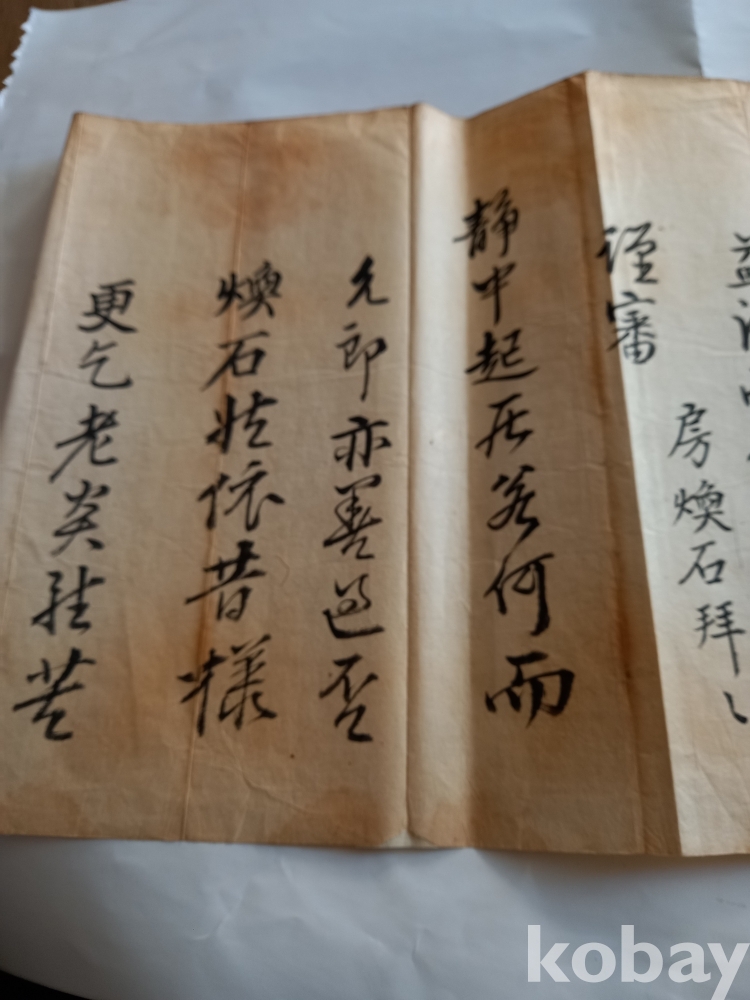 房煥石拜
謹審
靜中起居若何而
允郞亦善過否
煥石姑依昔樣
更乞老炎
kobay